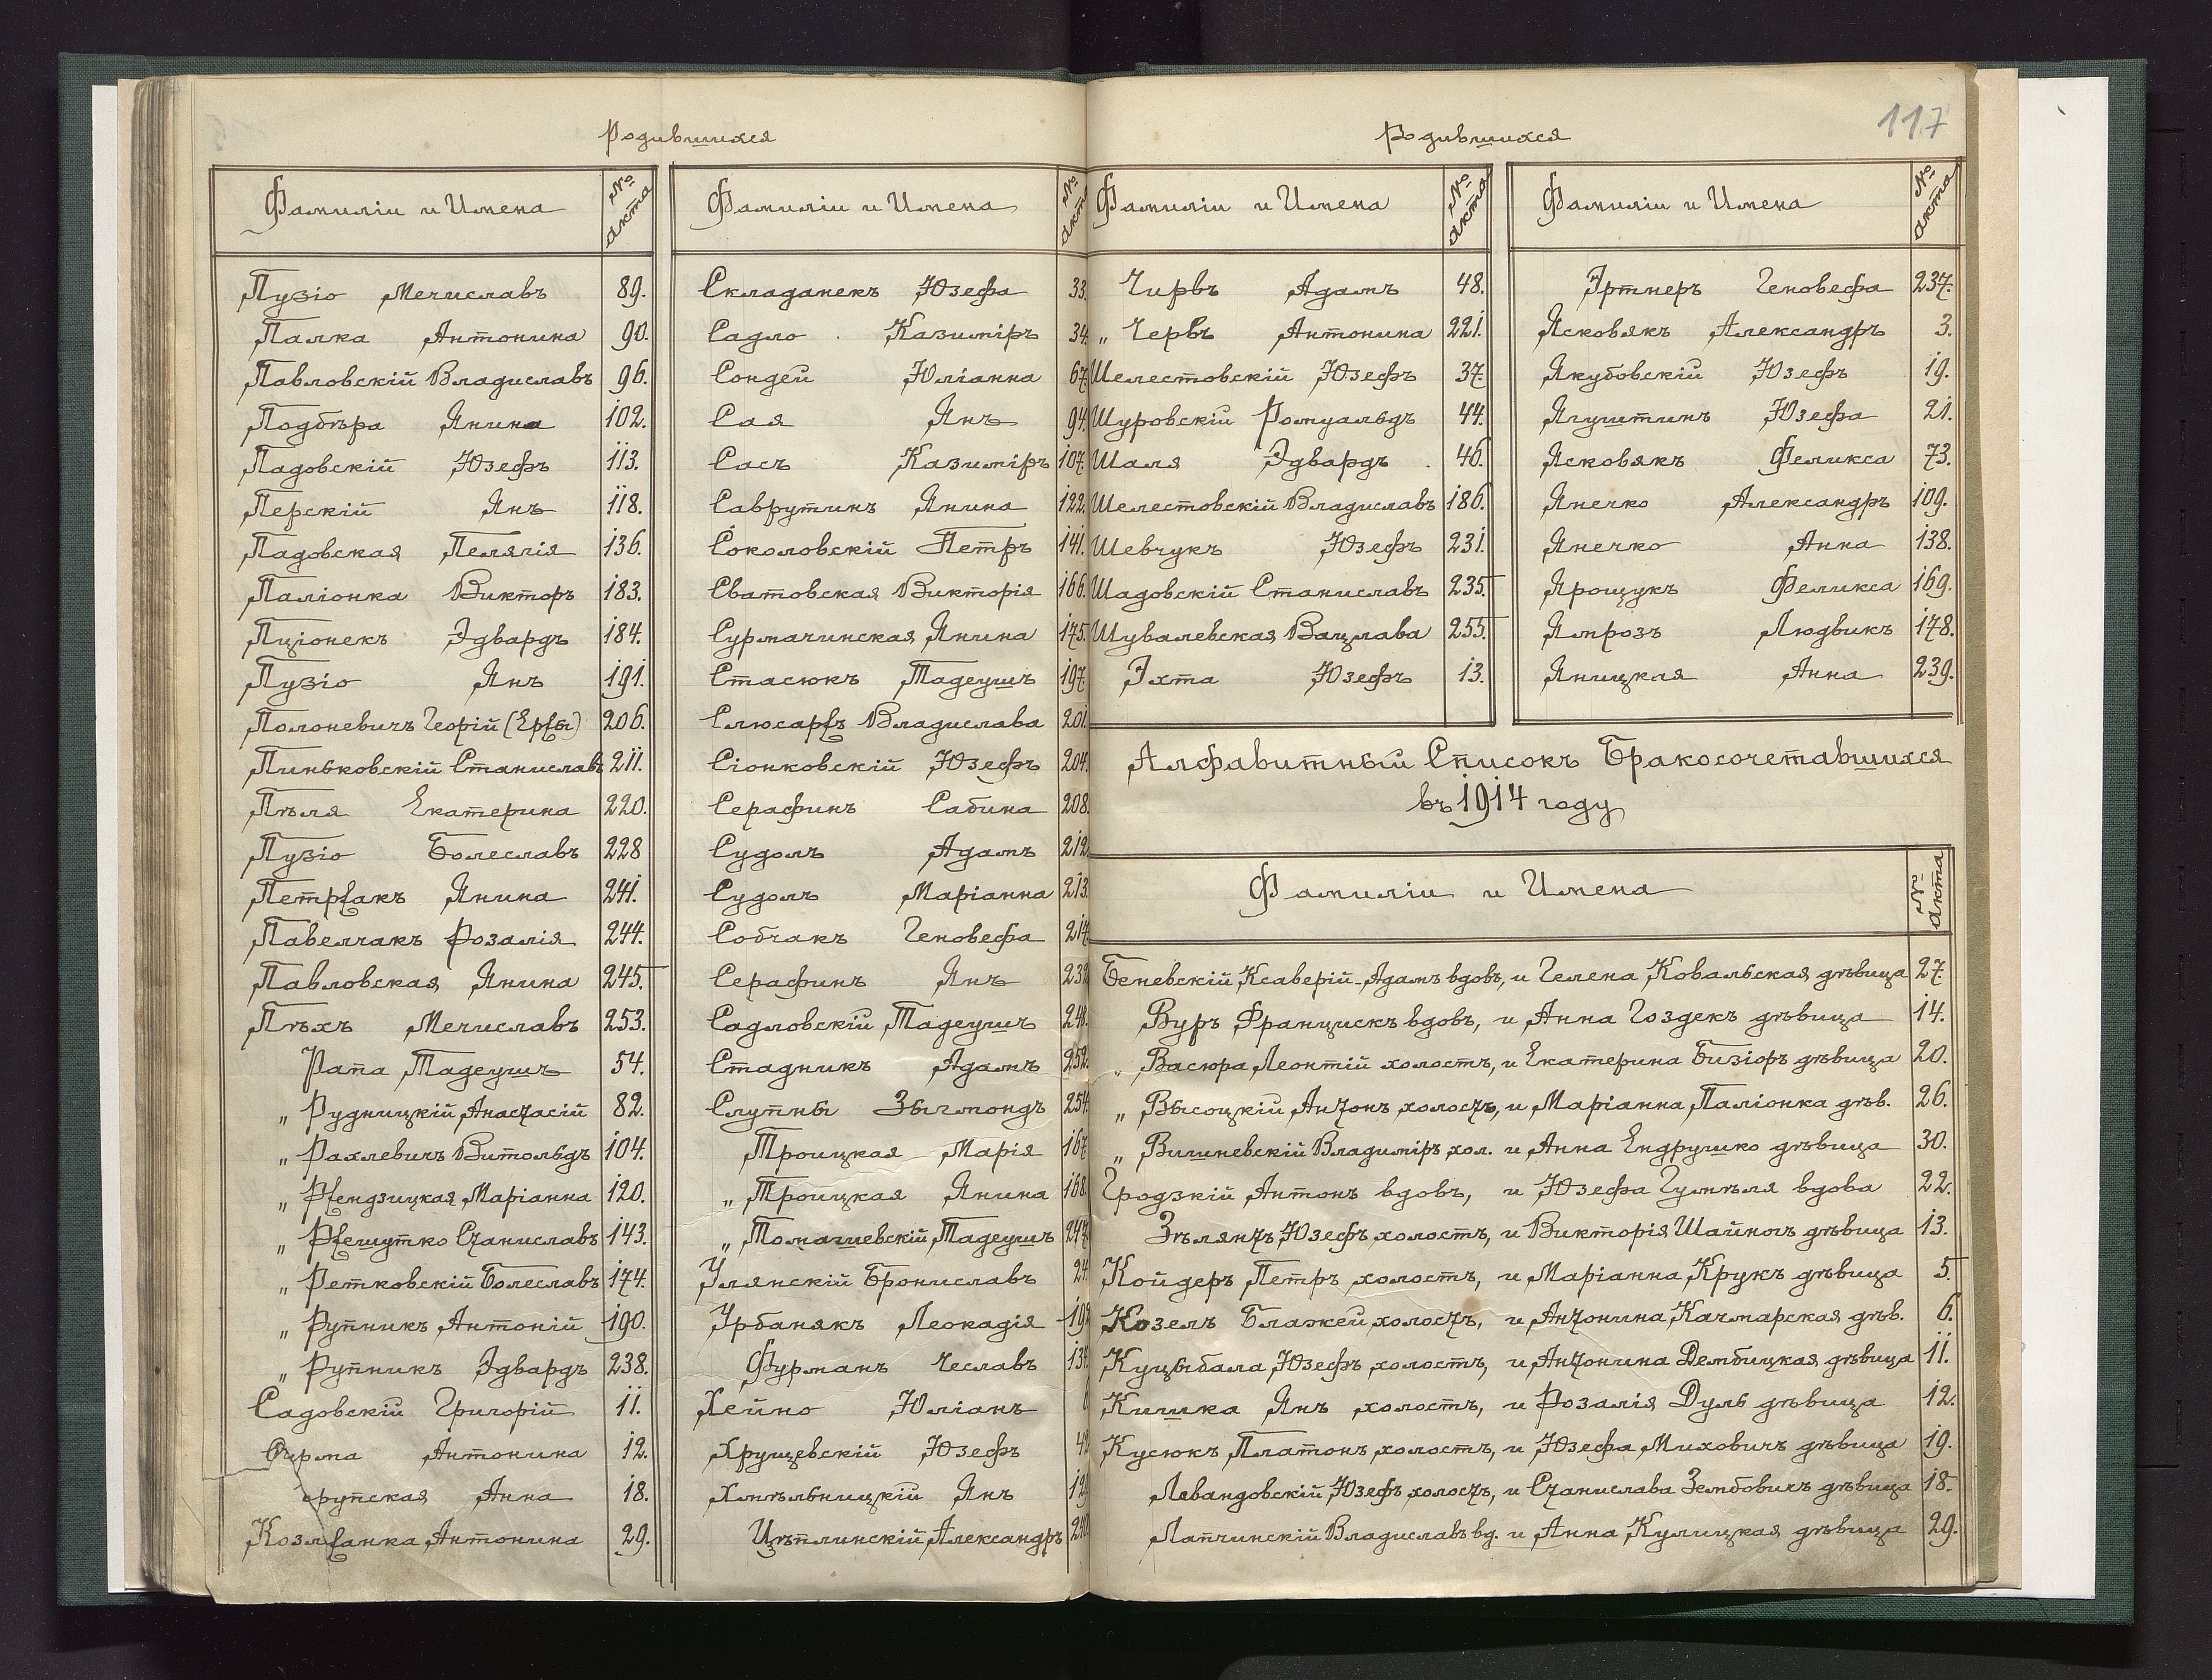 Родившихся
Фамиліи и Имена № акта
Пузіо Мечиславъ 89.
Палка Антонина 90.
Павловскій Владиславъ 96.
Подбѣра Янина 102.
Падовскій Юзефъ 113.
Перскій Янъ 118.
Падовская Пелягія 136.
Паліонка Викторъ 183.
Пціонекъ Эдвардъ 184.
Пузіо Янъ 191.
Полоневичъ Георій (Ерґы) 206.
Пиньковскій Станиславъ 211.
Пѣля Екатерина 220.
Пузіо Болеславъ 228
Петрґакъ Янина 241.
Павелчакъ Розалія 244.
Павловская Янина 245.
Пѣхъ Мечиславъ 253.
Рапа Тадеушъ 54.
„ Рудницкій Анастасій 82.
„ Рахлевичъ Витольдъ 104.
„ Рґендзицкая Маріанна 120.
„ Рґешутко Станиславъ 143.
„ Ретковскій Болеславъ 174.
„ Рупникъ Антоній 190.
„ Рупникъ Эдвардъ 238.
Садовскій Григорій 11.
Антонина 12.
Анна 18.
Козлґанка Антонина 29.
Фамиліи и Имена № акта
Складанекъ Юзефа 33.
Садло Казиміръ 34.
Сондей Юліанна 67.
Сая Янъ 94.
Сасъ Казиміръ 107.
Саврутинъ Янина 122.
Соколовскій Петръ 141.
Сватовская Викторія 166.
Сурмачинская Янина 175.
Стасюкъ Тадеушъ 197.
Слюсарґъ Владислава 201.
Сіонковскій Юзефъ 204.
Серафинъ Сабина 208.
Судолъ Адамъ 212.
Судолъ Маріанна 213.
Собчакъ Геновефа 217
Серафинъ Янъ 232
Садловскій Тадеушъ 248.
Стадникъ Адамъ 252.
Слутны Зыгмондъ 254.
Троицкая Марія 167
„ Троицкая Янина 168.
„ Томашевскій Тадеушъ 247.
Улянскій Брониславъ 24.
Урбанякъ Леокадія 192
Фурманъ Чеславъ 134.
Хейно Юліанъ
Хрущевскій Юзефъ
Хмѣльницкій Янъ
Цѣплинскій Александръ 240.
Родившихся
117
Фамиліи и Имена № акта
Чирвъ Адамъ 48.
„ Червъ Антонина 221.
Шелестовскій Юзефъ 37.
Шуровскій Ромуальдъ 44.
Шаля Эдвардъ 46.
Шелестовскій Владиславъ 186.
Шевчукъ Юзефъ 231.
Шадовскій Станиславъ 235.
Шувалевская Вацлава 255.
Эхта Юзефъ 13.
Фамиліи и Имена № акта
Эртнеръ Геновефа 237.
Ясковякъ Александръ 3.
Якубовскій Юзефъ 19.
Ягуштинъ Юзефа 21.
Ясковякъ Феликса 73.
Янечко Александръ 109.
Янечко Анна 138.
Ярощукъ Феликса 169.
Ямрозъ Людвикъ 178.
Яницкая Анна 239.
Алфавитный Списокъ Бракосочетавшихся
въ 1914 году
Фамиліи и Имена № акта
Беневскій Ксаверій-Адамъ вдовъ, и Гелена Ковальская дѣвица 27.
Вуръ Францискъ вдовъ, и Анна Гоздекъ дѣвица 14.
„ Васюра Леонтій холостъ, и Екатерина Бизіоръ дѣвица 20.
„ Высоцкій Антонъ холостъ, и Маріанна Паліонка дѣв. 26.
„ Вишневскій Владиміръ хол. и Анна Ендрушко дѣвица 30.
Гродзкій Антонъ вдовъ, и Юзефа Гумѣля вдова 22.
Зѣлянтъ Юзефъ холостъ, и Викторія Шайночъ дѣвица 13.
Койдеръ Петръ холостъ, и Маріанна Крукъ дѣвица 5.
Козелъ Блажей холостъ, и Антонина Качмарская дѣв. 6.
Куцыбала Юзефъ холостъ, и Антонина Дембицкая дѣвица 11.
Кишка Янъ холостъ, и Розалія Дуль дѣвица 12.
Кусюкъ Платонъ холостъ, и Юзефа Миховичъ дѣвица 19.
Левандовскій Юзефъ холостъ, и Станислава Зембовичъ дѣвица 18.
Лапчинскій Владиславъ вд. и Анна Кулицкая дѣвица 29.